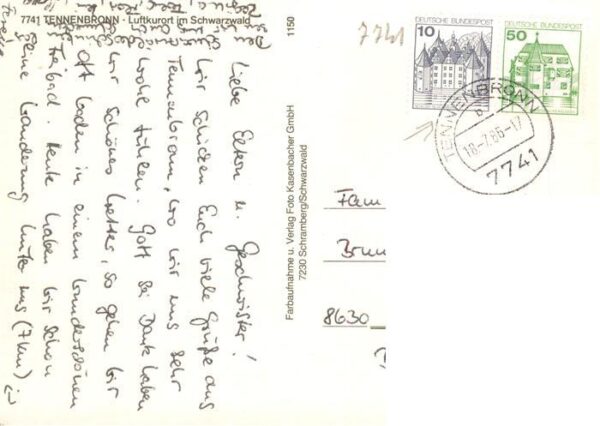 7741 TENNENBRONN · Luftkurort im Schwarzwald
1150
Liebe Eltern u. Geschwister!
Wir schicken Euch viele Grüße aus
Tennenbronn, wo wir uns sehr
wohl fühlen. Gott sei Dank haben
wir schönes Wetter, so gehen wir
oft baden in einem wunderschönen
Freibad. Heute haben wir schon
eine Wanderung hinter uns (7km)
Farbaufnahme u. Verlag Foto Kasenbacher GmbH
7230 Schramberg/Schwarzwald
7741
DEUTSCHE BUNDESPOST
10
DEUTSCHE BUNDESPOST
50
TENNENBRONN
b
18-7.86-17
7741
Fam
8630